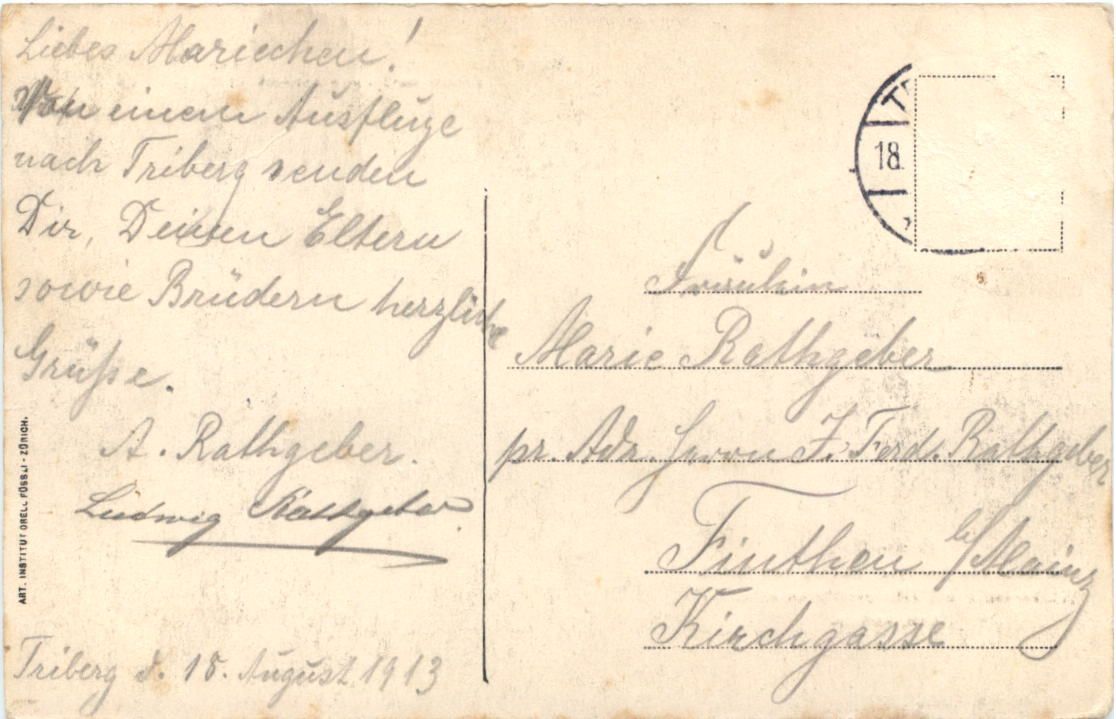 Liebes Mariechen!
Von einem Ausfluge
nach Triberg senden
Dir, Deinen Eltern
sowie Brüdern herzliche
Grüße.
A. Rathgeber.
Ludwig Rathgeber
Triberg d. 18. August 1913
ART. INSTITUT ORELL FÜSSLI - ZÜRICH.
T
18.
Fräulein
Marie Rathgeber
pr. Adr. Herrn J. Ferd. Rathgeber
Finthen b/Mainz
Kirchgasse